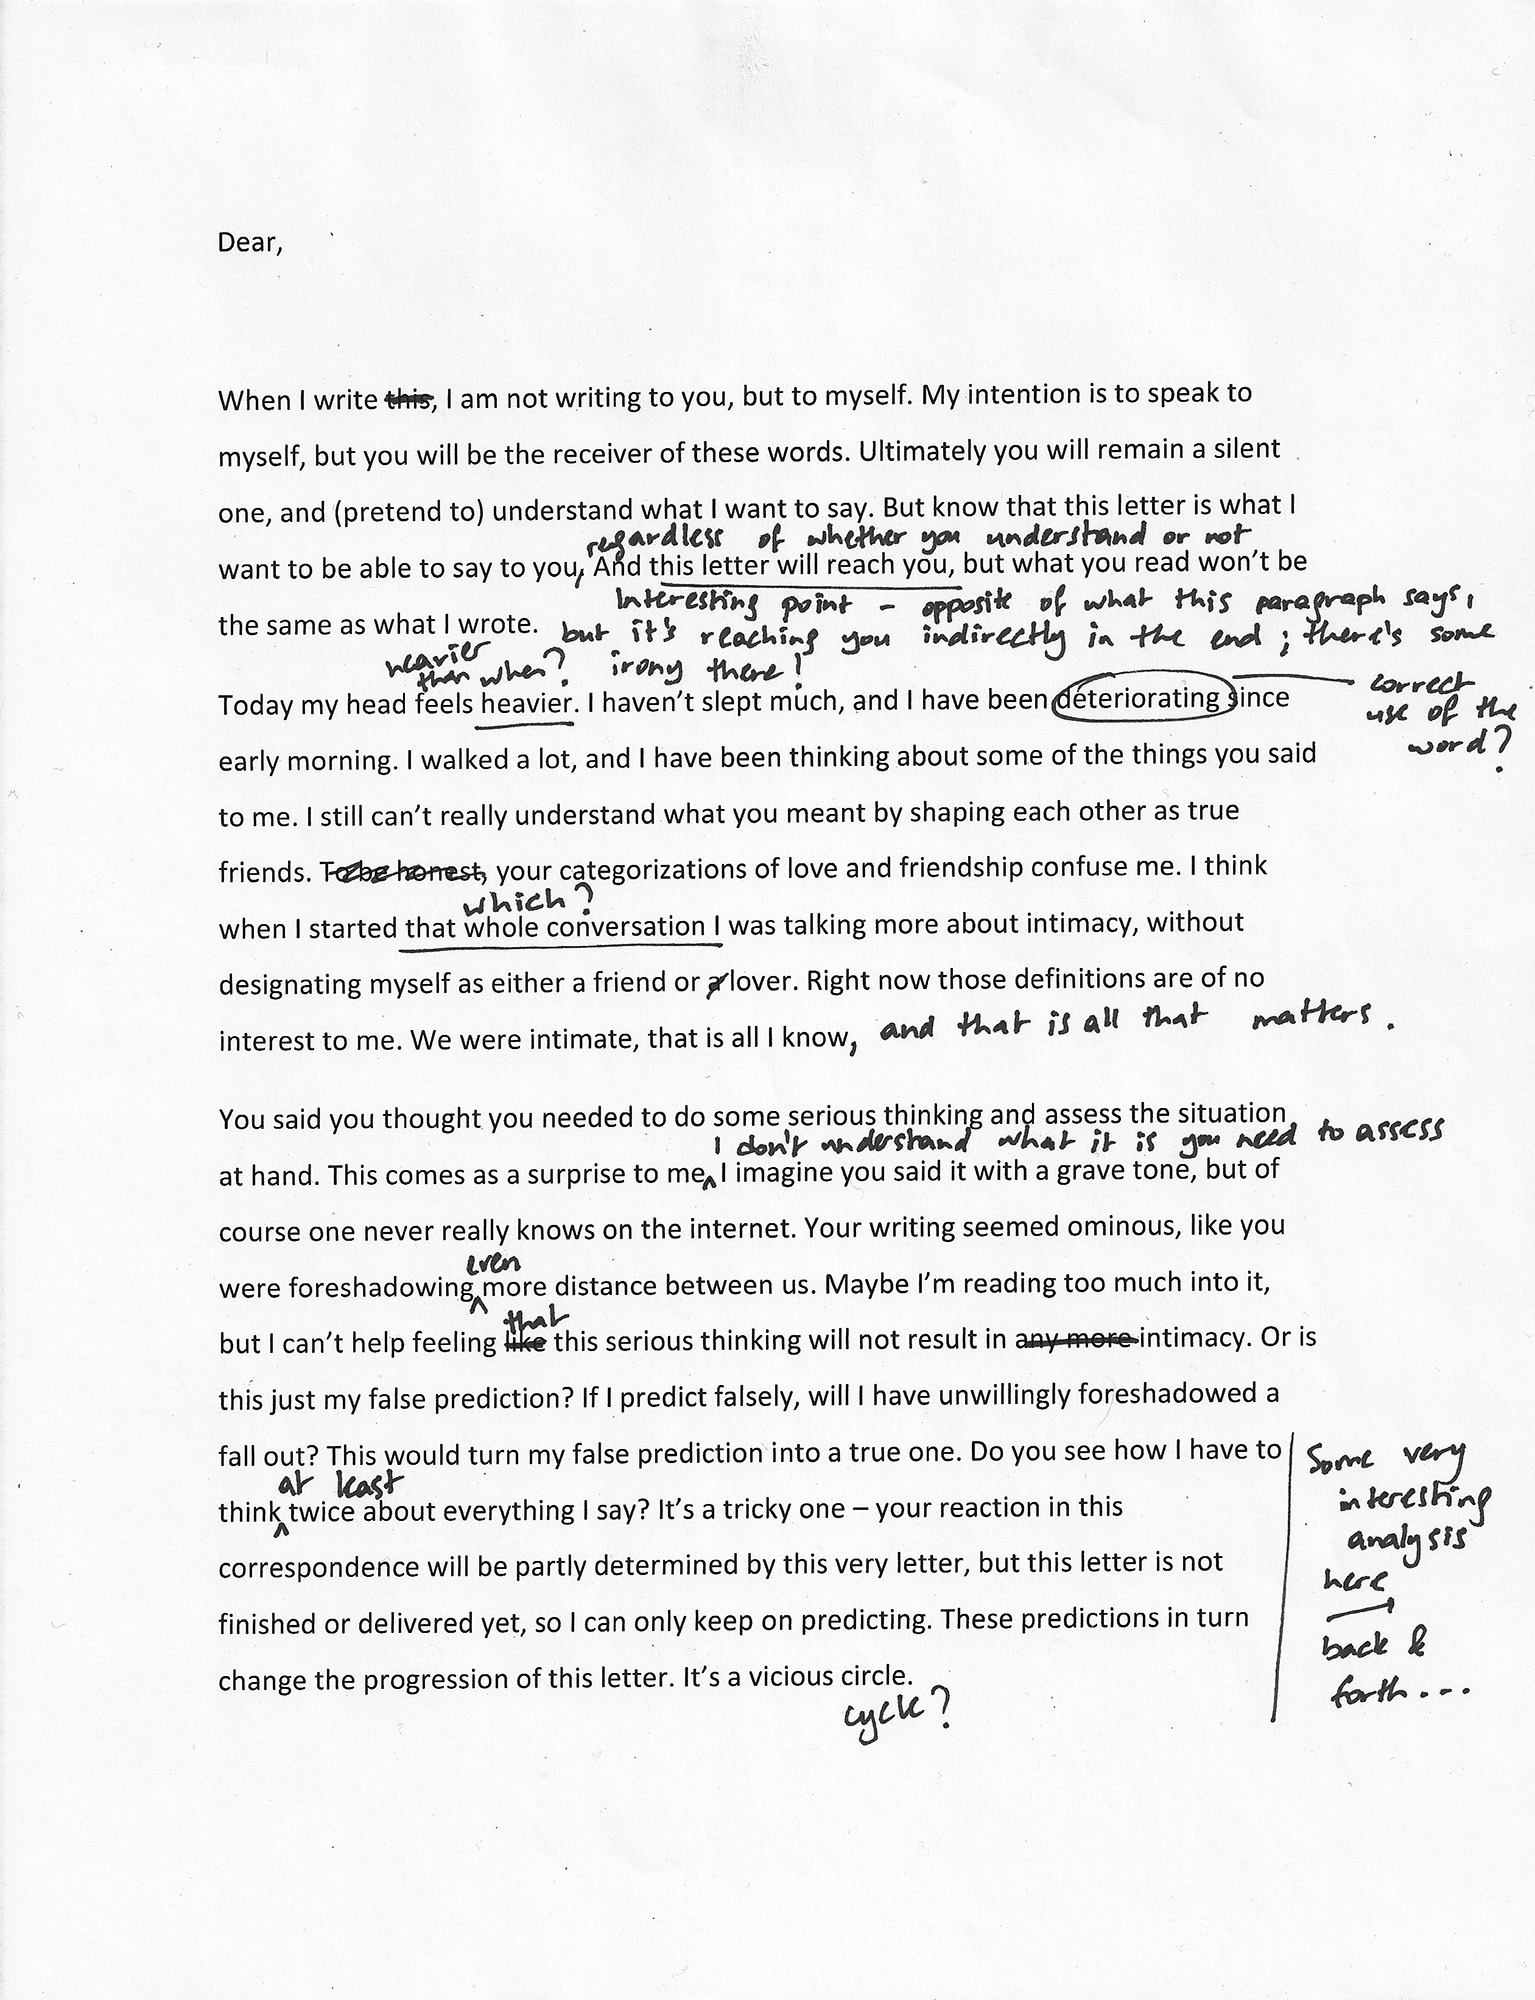 Dear,
When I write this, I am not writing to you, but to myself. My intention is to speak to
myself, but you will be the receiver of these words. Ultimately you will remain a silent
one, and (pretend to) understand what I want to say. But know that this letter is what I
regardless of whether you understand or not
want to be able to say to you, And this letter will reach you, but what you read won't be
Interesting point – opposite of what this paragraph says,
the same as what I wrote. but it's reaching you indirectly in the end; there's some
heavier
than when? irony there!
Today my head feels heavier. I haven't slept much, and I have been deteriorating since
correct
use of the
word?
early morning. I walked a lot, and I have been thinking about some of the things you said
to me. I still can't really understand what you meant by shaping each other as true
friends. To be honest, your categorizations of love and friendship confuse me. I think
which?
when I started that whole conversation I was talking more about intimacy, without
designating myself as either a friend or a lover. Right now those definitions are of no
interest to me. We were intimate, that is all I know, and that is all that matters.
You said you thought you needed to do some serious thinking and assess the situation
I don't understand what it is you need to assess
at hand. This comes as a surprise to me, I imagine you said it with a grave tone, but of
course one never really knows on the internet. Your writing seemed ominous, like you
even
were foreshadowing more distance between us. Maybe I'm reading too much into it,
that
but I can't help feeling like this serious thinking will not result in any more intimacy. Or is
this just my false prediction? If I predict falsely, will I have unwillingly foreshadowed a
fall out? This would turn my false prediction into a true one. Do you see how I have to
at least
think twice about everything I say? It's a tricky one – your reaction in this
correspondence will be partly determined by this very letter, but this letter is not
finished or delivered yet, so I can only keep on predicting. These predictions in turn
change the progression of this letter. It's a vicious circle.
cycle?
Some very
interesting
analysis
here
back &
forth...